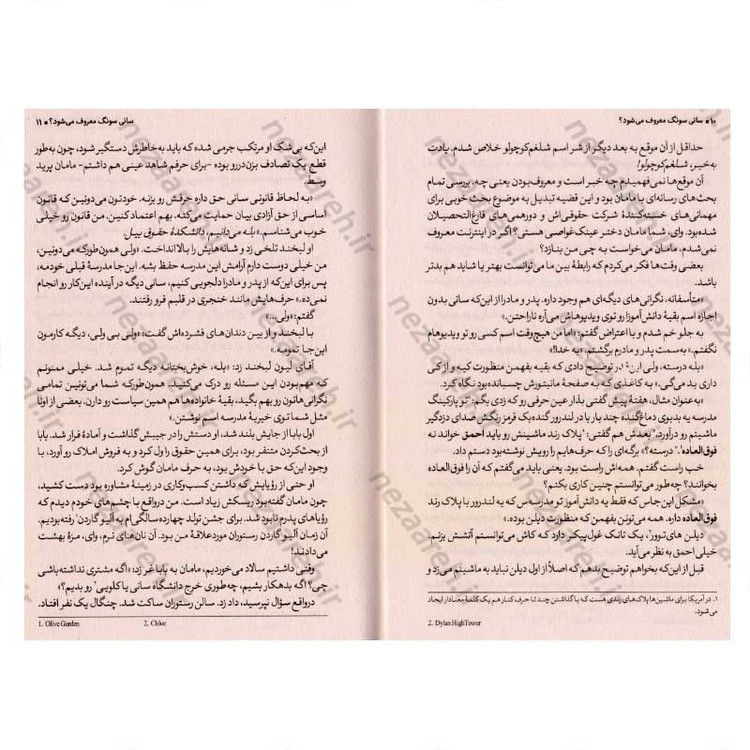 ۱۰ ■ سانی سونگ معروف می‌شود؟
حداقل از آن موقع به بعد دیگر از شر اسم شلغم‌کوچولو خلاص شدم. یادت
به‌خیر، شلغم‌کوچولو!
آن موقع‌ها نمی‌فهمیدم چه خبر است و معروف‌بودن یعنی چه، بررسی تمام
بحث‌های رسانه‌ای با مامان بود و این قضیه تبدیل به موضوع بحث خوبی برای
مهمانی‌های خسته‌کنندهٔ شرکت حقوقی‌اش و دورهمی‌های فارغ‌التحصیلان
شده‌بود. وای، شما مامان دختر عینک‌غواصی هستی؟ اگر در اینترنت معروف
نمی‌شدم، مامان می‌خواست به چی من بنازد؟
بعضی وقت‌ها فکر می‌کردم که رابطهٔ بین ما می‌توانست بهتر یا شاید هم بدتر
باشد.
«متأسفانه، نگرانی‌های دیگه‌ای هم وجود داره. پدر و مادرا از این‌که سانی بدون
اجازه اسم بقیهٔ دانش‌آموزا رو توی ویدیوهاش می‌آره ناراحتن.»
به جلو خم شدم و با اعتراض گفتم: «اما من هیچ‌وقت اسم کسی رو تو ویدیوهام
نگفتم.» به‌سمت پدر و مادرم برگشتم. «به خدا!»
«بله درسته، ولی این‌قدر توضیح دادی که بقیه بفهمن منظورت کیه و از کی
داری بد می‌گی.» به کاغذی که به صفحهٔ مانیتورش چسبانده‌بود نگاه کرد.
«به‌عنوان مثال، هفتهٔ پیش گفتی بذار عین حرفی رو که زدی بگم: "تو پارکینگ
مدرسه یه بدبوی دماغ‌گنده چند بار با در لندرور گنده‌یک قرمز رنگش صدای دزدگیر
ماشینم رو درآورد." بعدش هم گفتی: "پلاک رند ماشینش رو باید احمق خواند نه
فوق‌العاده¹." درسته؟» برگه‌ای را که حرف‌هایم را رویش نوشته‌بود دستم داد.
خب راست گفتم. همه‌اش راست بود. یعنی باید می‌گفتم که آن را فوق‌العاده
بخوانند؟ چه‌طور می‌توانستم چنین کاری بکنم؟
«مشکل این‌جاس که فقط یه دانش‌آموز تو مدرسه‌س که یه لندرور با پلاک رند
فوق‌العاده داره. همه می‌تونن بفهمن که منظورت دیلن بوده.»
دیلن های‌توور²، یک تانک غول‌پیکر دارد که کاش می‌توانستم آتشش بزنم.
خیلی احمق به نظر می‌آید.
قبل از این‌که بخواهم توضیح بدهم که اصلاً از اول دیلن نباید به ماشینم می‌زد و
۱. در آمریکا برای ماشین‌ها پلاک‌های رندی هست که با گذاشتن چند تا حرف کنار هم یک کلمهٔ معنادار ایجاد
می‌شود.
2. Dylan HighTower
سانی سونگ معروف می‌شود؟ ■ ۱۱
این‌که بی‌شک او مرتکب جرمی شده که باید به‌خاطرش دستگیر شود، چون به‌طور
قطع یک تصادف بزن‌دررو بوده -برای حرفم شاهد عینی هم داشتم- مامان پرید
وسط.
«به لحاظ قانونی سانی حق داره حرفش رو بزنه. خودتون می‌دونین که قانون
اساسی از حق آزادی بیان حمایت می‌کنه. بهم اعتماد کنین. من قانون رو خیلی
خوب می‌شناسم.» بله می‌دانیم، دانشکدهٔ حقوق ییل.
او لبخند تلخی زد و شانه‌هایش را بالا انداخت. «ولی همون‌طور که می‌دونین،
من خیلی دوست دارم آرامش این مدرسه حفظ بشه. این‌جا مدرسهٔ قبلی خودمه،
پس برای این‌که از پدر و مادرا دلجویی کنیم، سانی دیگه در آینده این‌کار رو انجام
نمی‌ده.» حرف‌هایش مانند خنجری در قلبم فرو رفتند.
گفتم: «ولی...»
با لبخند و از بین دندان‌های فشرده‌اش گفت: «ولی بی ولی، دیگه کارمون
این‌جا تمومه.»
آقای لیون لبخند زد: «بله، خوش‌بختانه دیگه تموم شد. خیلی ممنونم
که مهم‌بودن این مسئله رو درک می‌کنید. همون‌طور که شما می‌تونین تمامی
نگرانی‌هاتون رو بهم بگید، بقیهٔ خانواده‌ها هم همین سیاست رو دارن. بعضی از اونا
مثل شما توی خیریهٔ مدرسه اسم نوشتن.»
اول بابا از جایش بلند شد، او دستش را در جیبش گذاشت و آمادهٔ فرار شد. بابا
از بحث‌کردن متنفر بود، برای همین حقوق را ول کرد و به فروش املاک رو آورد، با
وجود این‌که حق با خودش بود، به حرف مامان گوش کرد.
او حتی از رؤیایش که داشتن کسب‌وکاری در زمینهٔ مشاوره بود دست کشید،
چون مامان گفته‌بود ریسکش زیاد است. من درواقع با چشم‌های خودم دیدم که
رؤیاهای پدرم نابود شد. برای جشن تولد چهارده‌سالگی‌ام به آلیو گاردن¹ رفته‌بودیم.
آن زمان آلیو گاردن رستوران موردعلاقهٔ من بود. آن نان‌های نرم، وای، مزهٔ بهشت
می‌دادند!
وقتی داشتیم سالاد می‌خوردیم، مامان به بابا غر زد: «اگه مشتری نداشته‌باشی
چی؟ اگه بدهکار بشیم، چه‌طوری خرج دانشگاه سانی یا کلویی² رو بدیم؟»
درواقع سؤال نپرسید، داد زد. سالن رستوران ساکت شد. چنگال یک نفر افتاد.
1. Olive Garden
2. Chloe
nezaafeh.ir